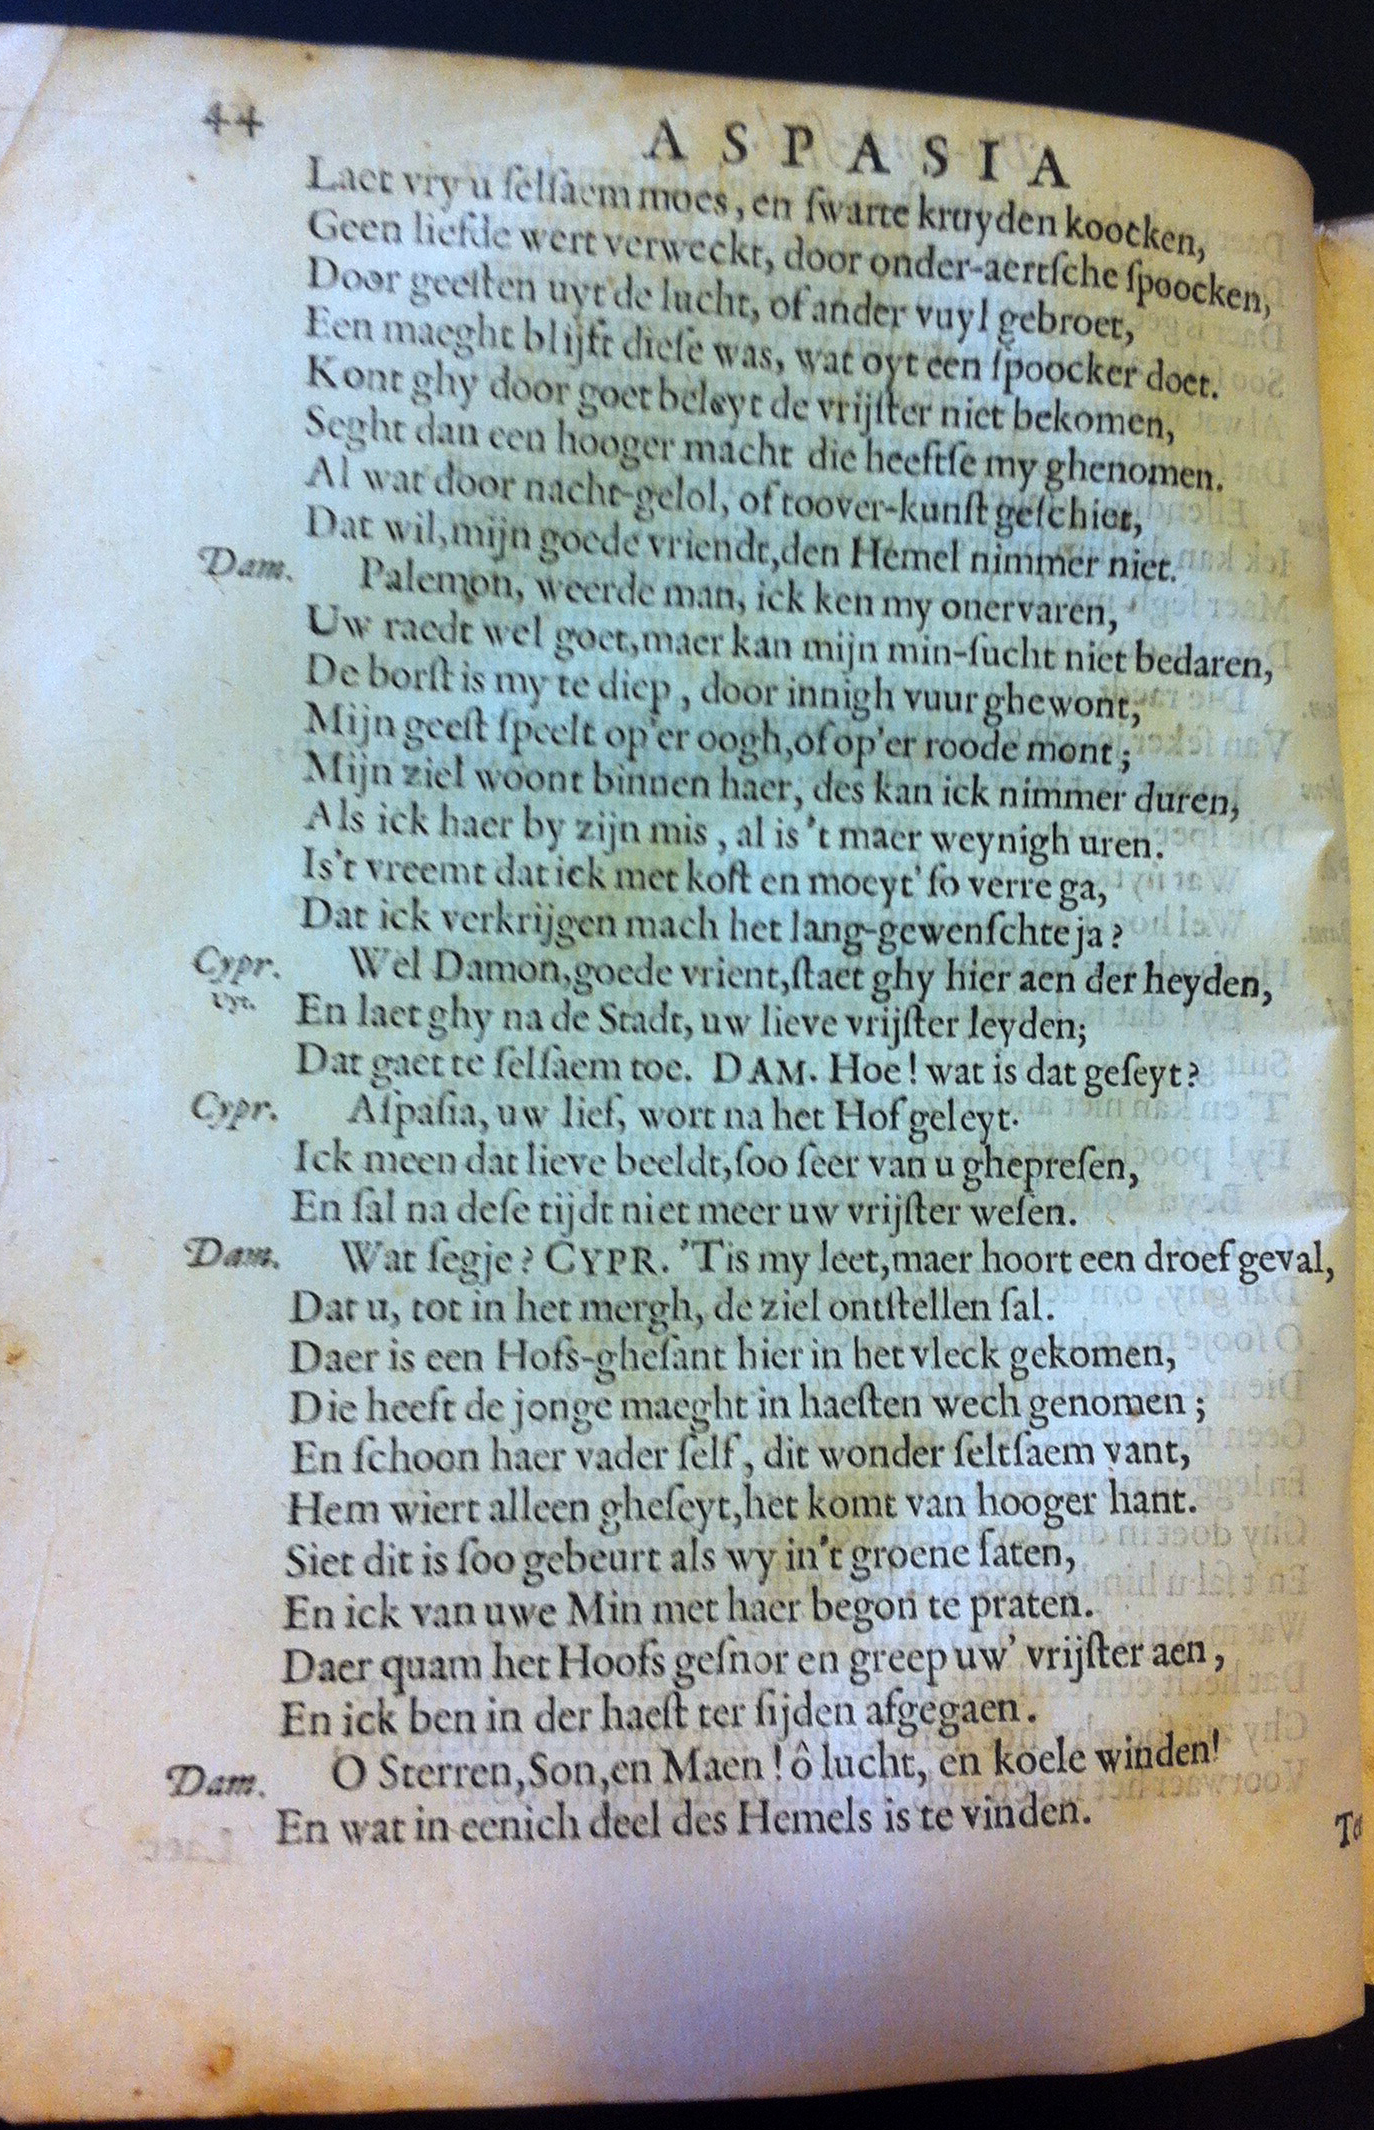 44
ASPASIA
Laet vry u selsaem moes, en swarte kruyden koocken,
Geen liefde wert verweckt, door onder-aertsche spoocken,
Door geesten uyt de lucht, of ander vuyl gebroet,
Een maeght blijft diese was, wat oyt een spoocker doet.
Kont ghy door goet beleyt de vrijster niet bekomen,
Seght dan een hooger macht die heeftse my ghenomen.
Al wat door nacht-gelol, of toover-kunst geschiet,
Dat wil, mijn goede vriendt, den Hemel nimmer niet.
Dam. Palemon, weerde man, ick ken my onervaren,
Uw raedt wel goet, maer kan mijn min-sucht niet bedaren,
De borst is my te diep, door innigh vuur ghewont,
Mijn geest speelt op'er oogh, of op'er roode mont;
Mijn ziel woont binnen haer, des kan ick nimmer duren,
Als ick haer by zijn mis, al is 't maer weynigh uren.
Is't vreemt dat ick met kost en moeyt' so verre ga,
Dat ick verkrijgen mach het lang-gewenschte ja?
Cypr. Wel Damon, goede vrient, staet ghy hier aen der heyden,
Uyt. En laet ghy na de Stadt, uw lieve vrijster leyden;
Dat gaet te selsaem toe. DAM. Hoe! wat is dat geseyt?
Cypr. Aspasia, uw lief, wort na het Hof geleyt.
Ick meen dat lieve beeldt, soo seer van u ghepresen,
En sal na dese tijdt niet meer uw vrijster wesen.
Dam. Wat segje? CYPR. 'Tis my leet, maer hoort een droef geval,
Dat u, tot in het mergh, de ziel ontstellen sal.
Daer is een Hofs-ghesant hier in het vleck gekomen,
Die heeft de jonge maeght in haesten wech genomen;
En schoon haer vader self, dit wonder seltsaem vant,
Hem wiert alleen gheseyt, het komt van hooger hant.
Siet dit is soo gebeurt als wy in't groene saten,
En ick van uwe Min met haer begon te praten.
Daer quam het Hoofs gesnor en greep uw' vrijster aen,
En ick ben in der haest ter sijden afgegaen.
Dam. O Sterren, Son, en Maen! ô lucht, en koele winden!
En wat in eenich deel des Hemels is te vinden.